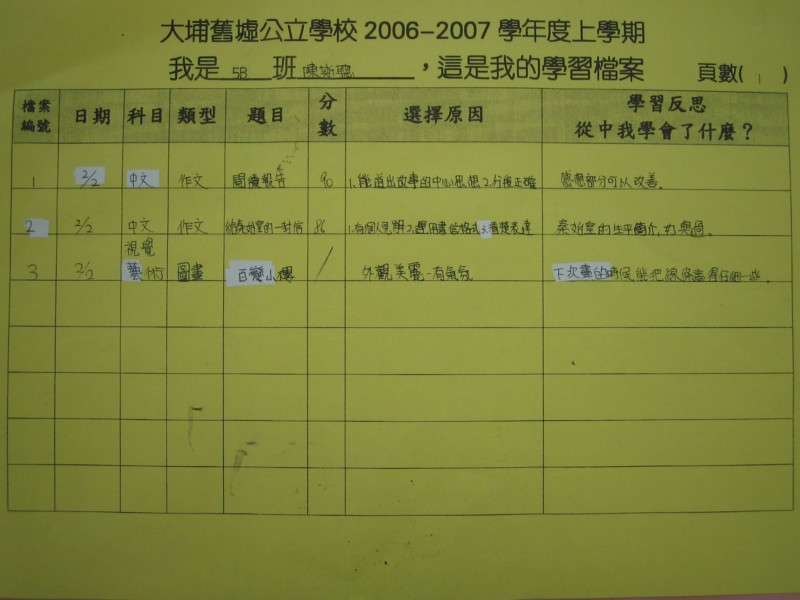 大埔舊墟公立學校 2006-2007 學年度上學期
我是 5B 班 陳 ，這是我的學習檔案 頁數( 1 )
檔案編號 日期 科目 類型 題目 分數 選擇原因 學習反思 從中我學會了什麼？
1 2/2 中文 作文 閱讀報告 90 1.能道出故事的中心思想 2.分段正確 感想部分可以改善。
2 2/2 中文 作文 給秦始皇的一封信 86 1.有個人見解 2.運用書信格式 3.清楚表達 秦始皇的生平簡介,功與過。
3 2/2 視覺藝術 圖畫 百變小櫻 / 外觀美麗-有氣氛 下次畫的時候能把線條畫得仔細一些。